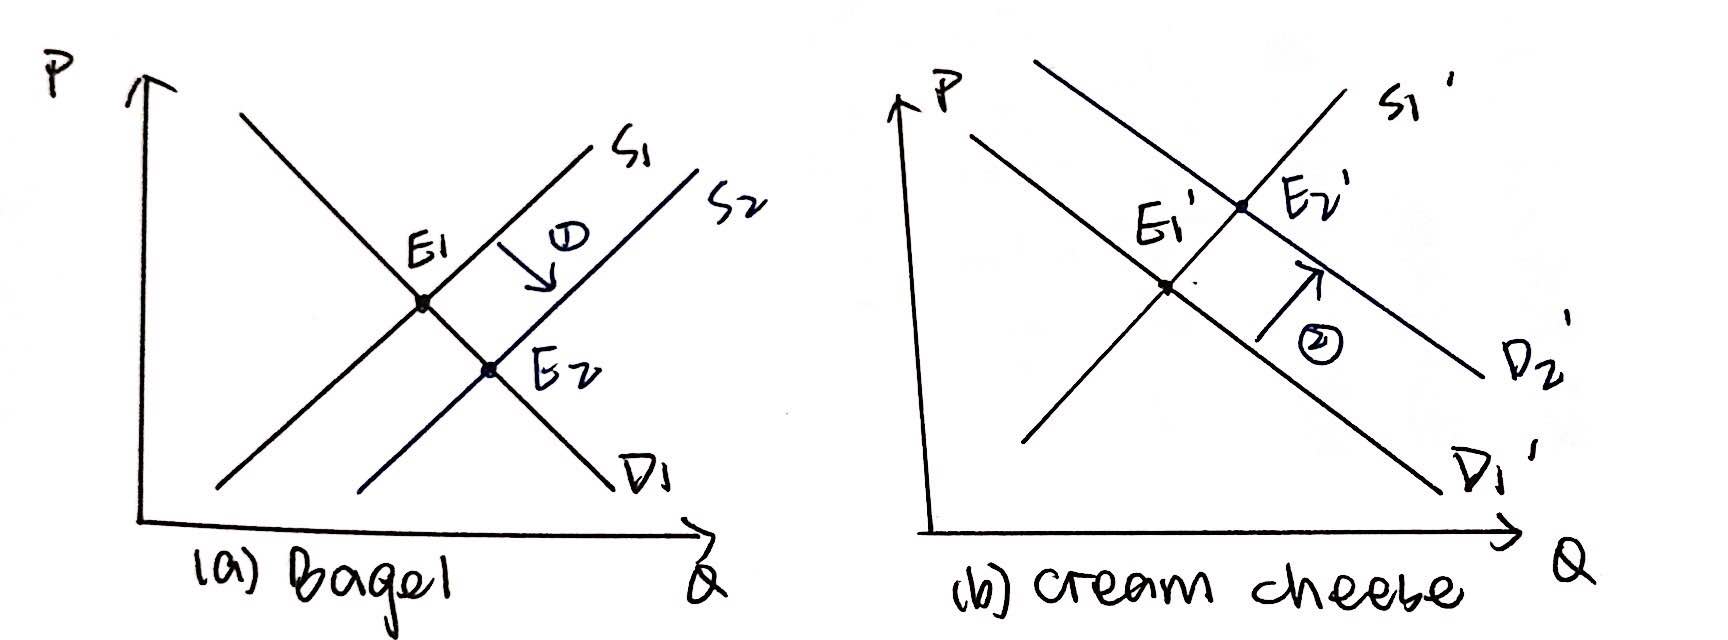 P
S1
S2
①
E1
E2
D1
Q
(a) Bagel
P
S1'
E2'
E1'
②
D2'
D1'
Q
(b) cream cheese